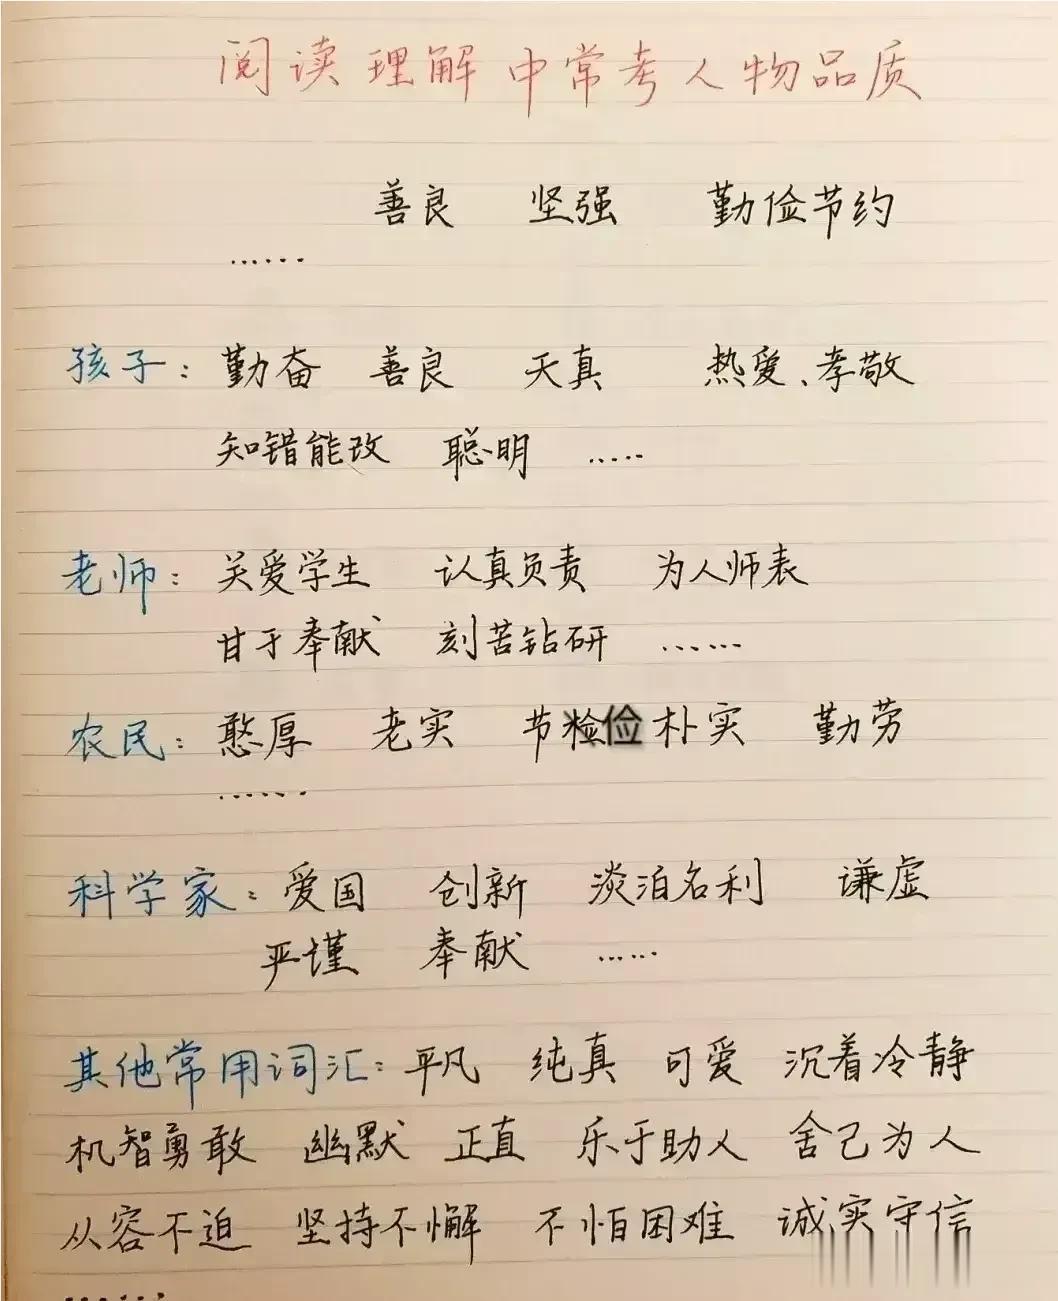 阅读理解中常考人物品质
善良 坚强 勤俭节约
……
孩子：勤奋 善良 天真 热爱、孝敬
知错能改 聪明 ……
老师：关爱学生 认真负责 为人师表
甘于奉献 刻苦钻研 ……
农民：憨厚 老实 节俭 朴实 勤劳
……
科学家：爱国 创新 淡泊名利 谦虚
严谨 奉献 ……
其他常用词汇：平凡 纯真 可爱 沉着冷静
机智勇敢 幽默 正直 乐于助人 舍己为人
从容不迫 坚持不懈 不怕困难 诚实守信
……